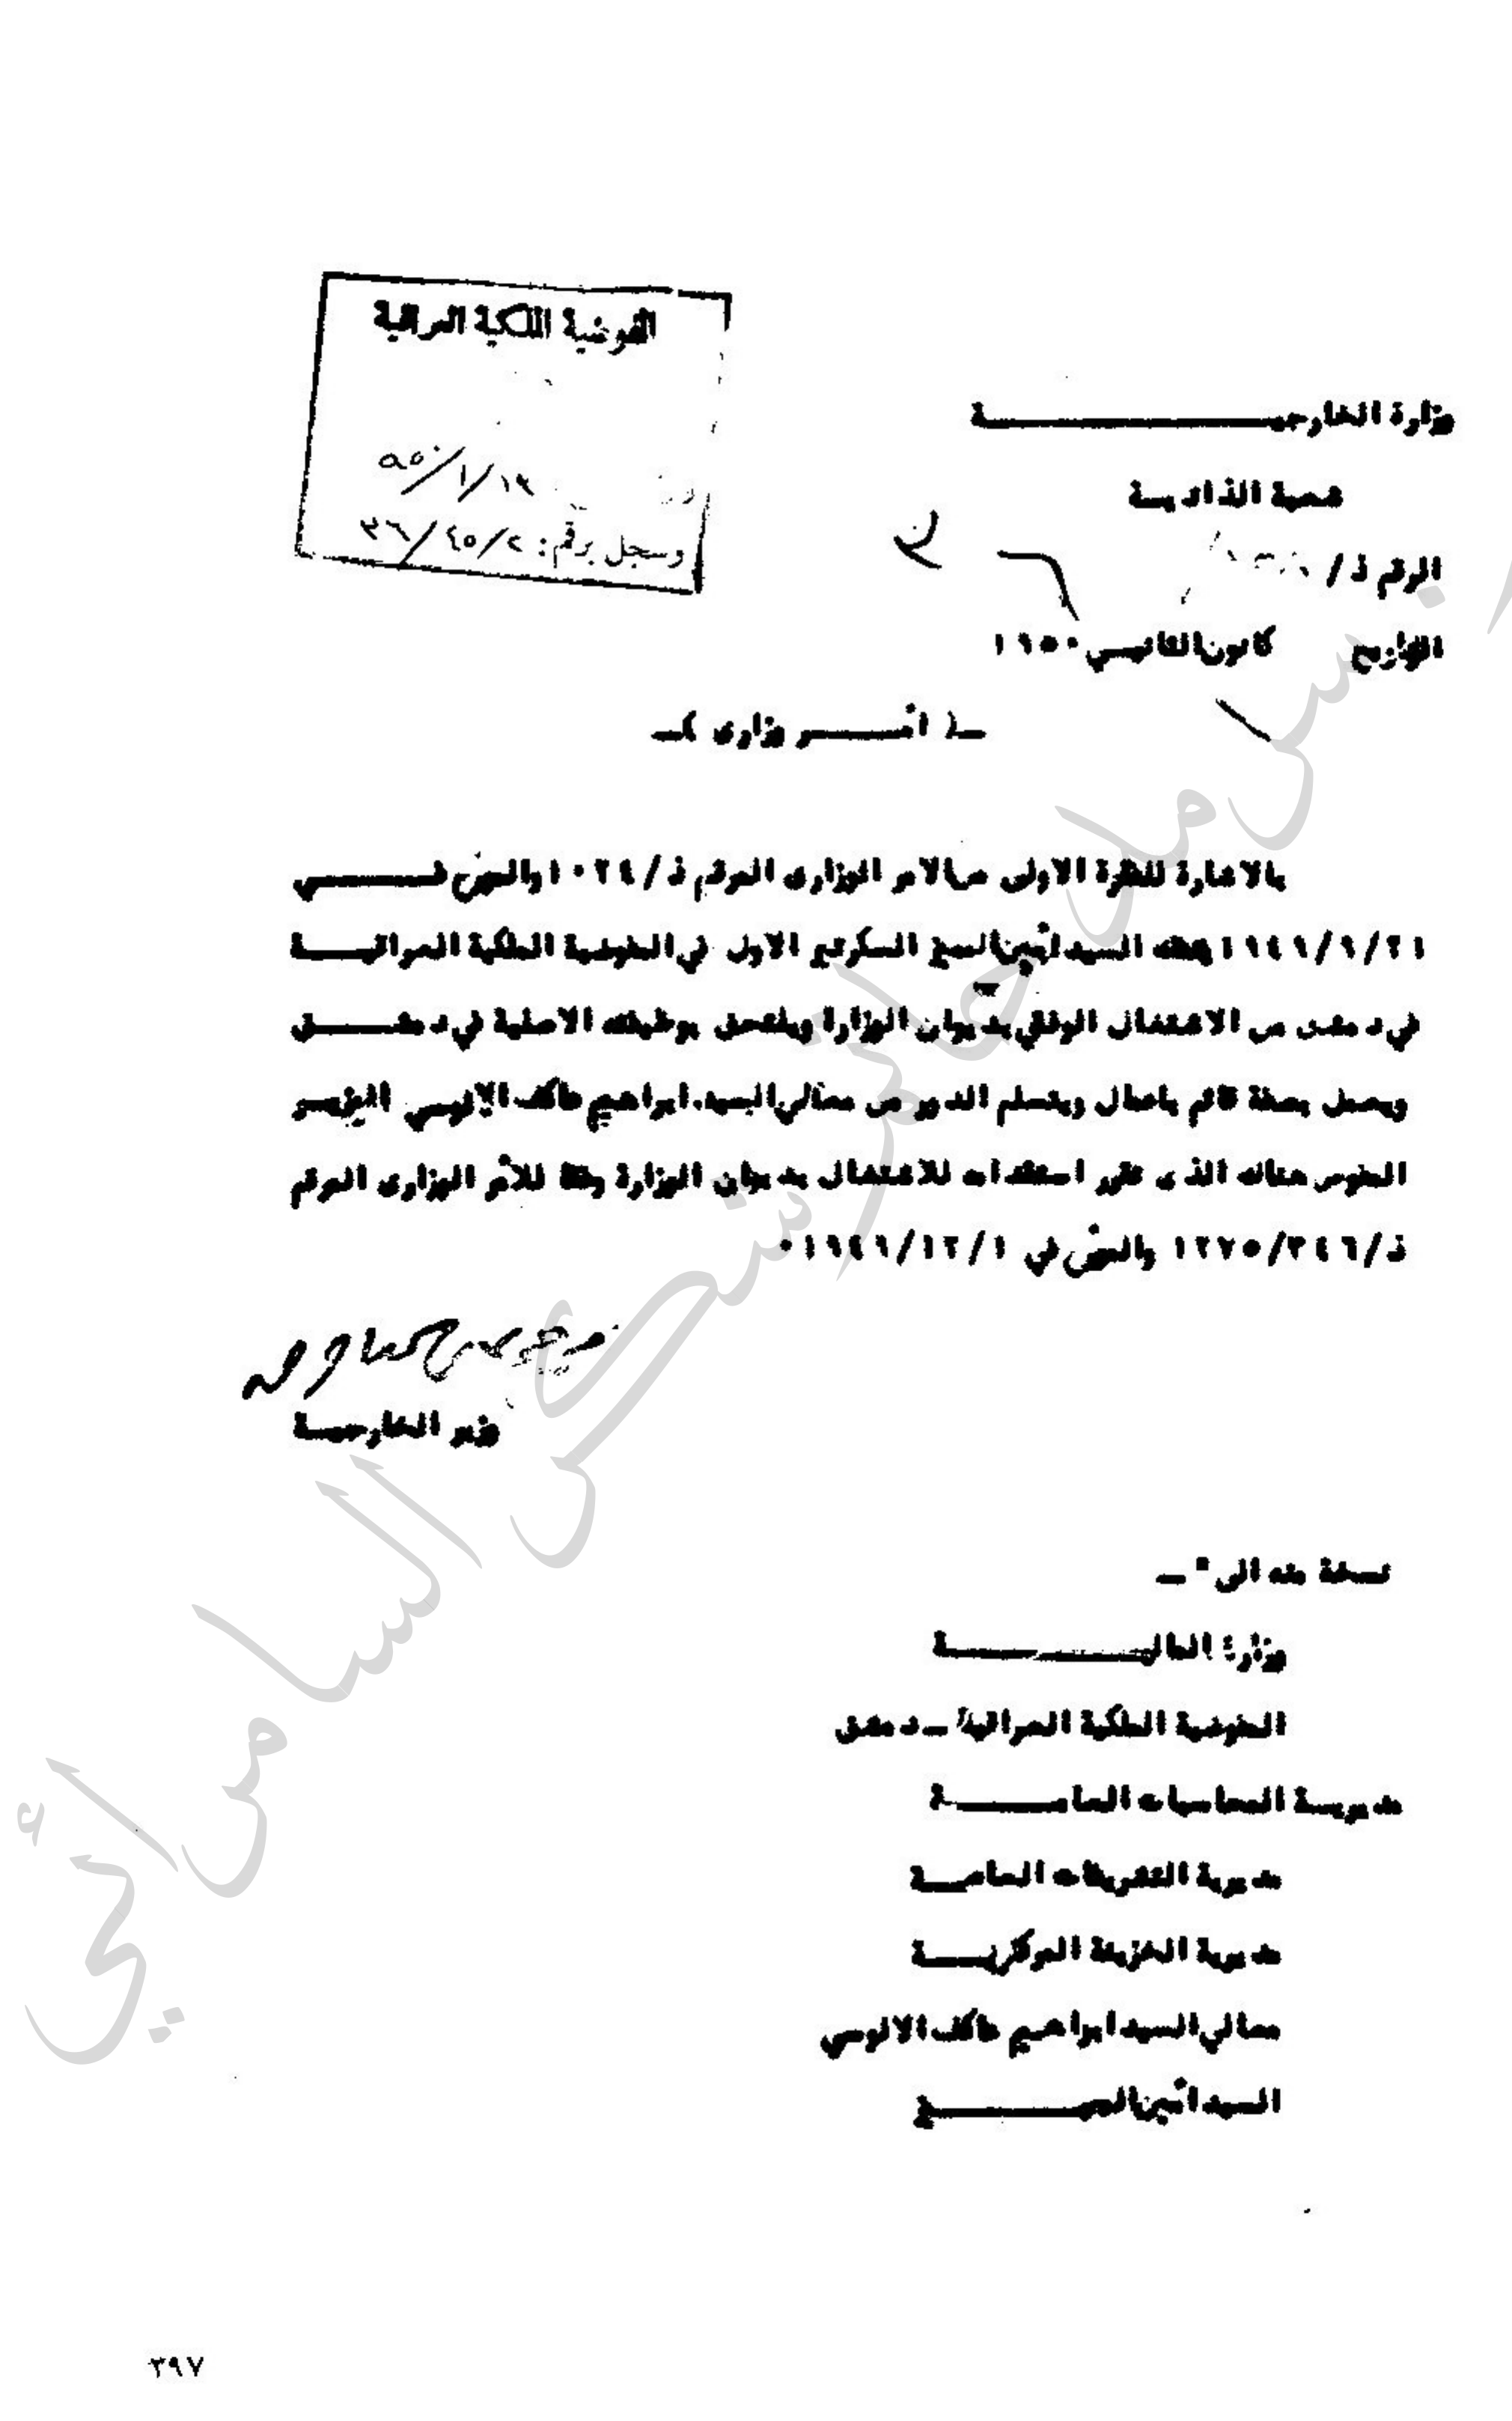 المفوضية الملكية العراقية
٩٥٠/١/١٢
وسجل برقم: ٣٦/٤٥/٢
وزارة الخارجيـــــــــة
شعبة الذاتيـــة
الرقم ذ /
التاريخ كانون الثانـــي ١٩٥٠
ــ( أمـــــر وزارى )ــ
بالاشارة للفقرة الاولى من الامر الوزارى المرقم ذ/١٠٢٤ والمؤرخ فـــــــي
١٩٤٩/٩/٢١ السيد أمين المميز السكرتير الاول في المفوضية الملكية العراقيـــــة
في دمشق من الاشتغال الوقتي بديوان الوزارة ويلتحق بوظيفته الاصلية في دمشـــــق
ويعمل بصفة قائم باعمال ويتسلم الدور من معالي السيد ابراهيم عاكف الالوسي الوزيـــر
المفوض هناك الذى تقرر استقدامه للاشتغال بديوان الوزارة وفقا للأمر الوزارى المرقم
ذ/١٢٧٥/٣٤٦ والمؤرخ في ١٩٤٩/١٢/١ ٠
وزير الخارجيـــة
نسخة منه الى :ــ
وزارة الماليـــــــــــة
المفوضية الملكية العراقية ــ دمشق
مديريـــة المحاسبات العامـــــــة
مديرية التشريفات العامـــة
مديرية الخزينة المركزيـــــة
معالي السيد ابراهيم عاكف الالوسي
السيد أمين المميـــــــــز
سرمد عازر شكر السامرائي
٣٩٧